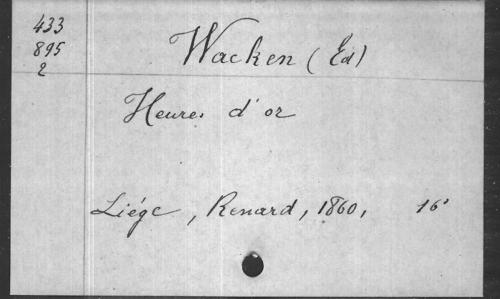 433
895
2
Wacken (Ed)
Heures d'or
Liége, Renard, 1860, 16°